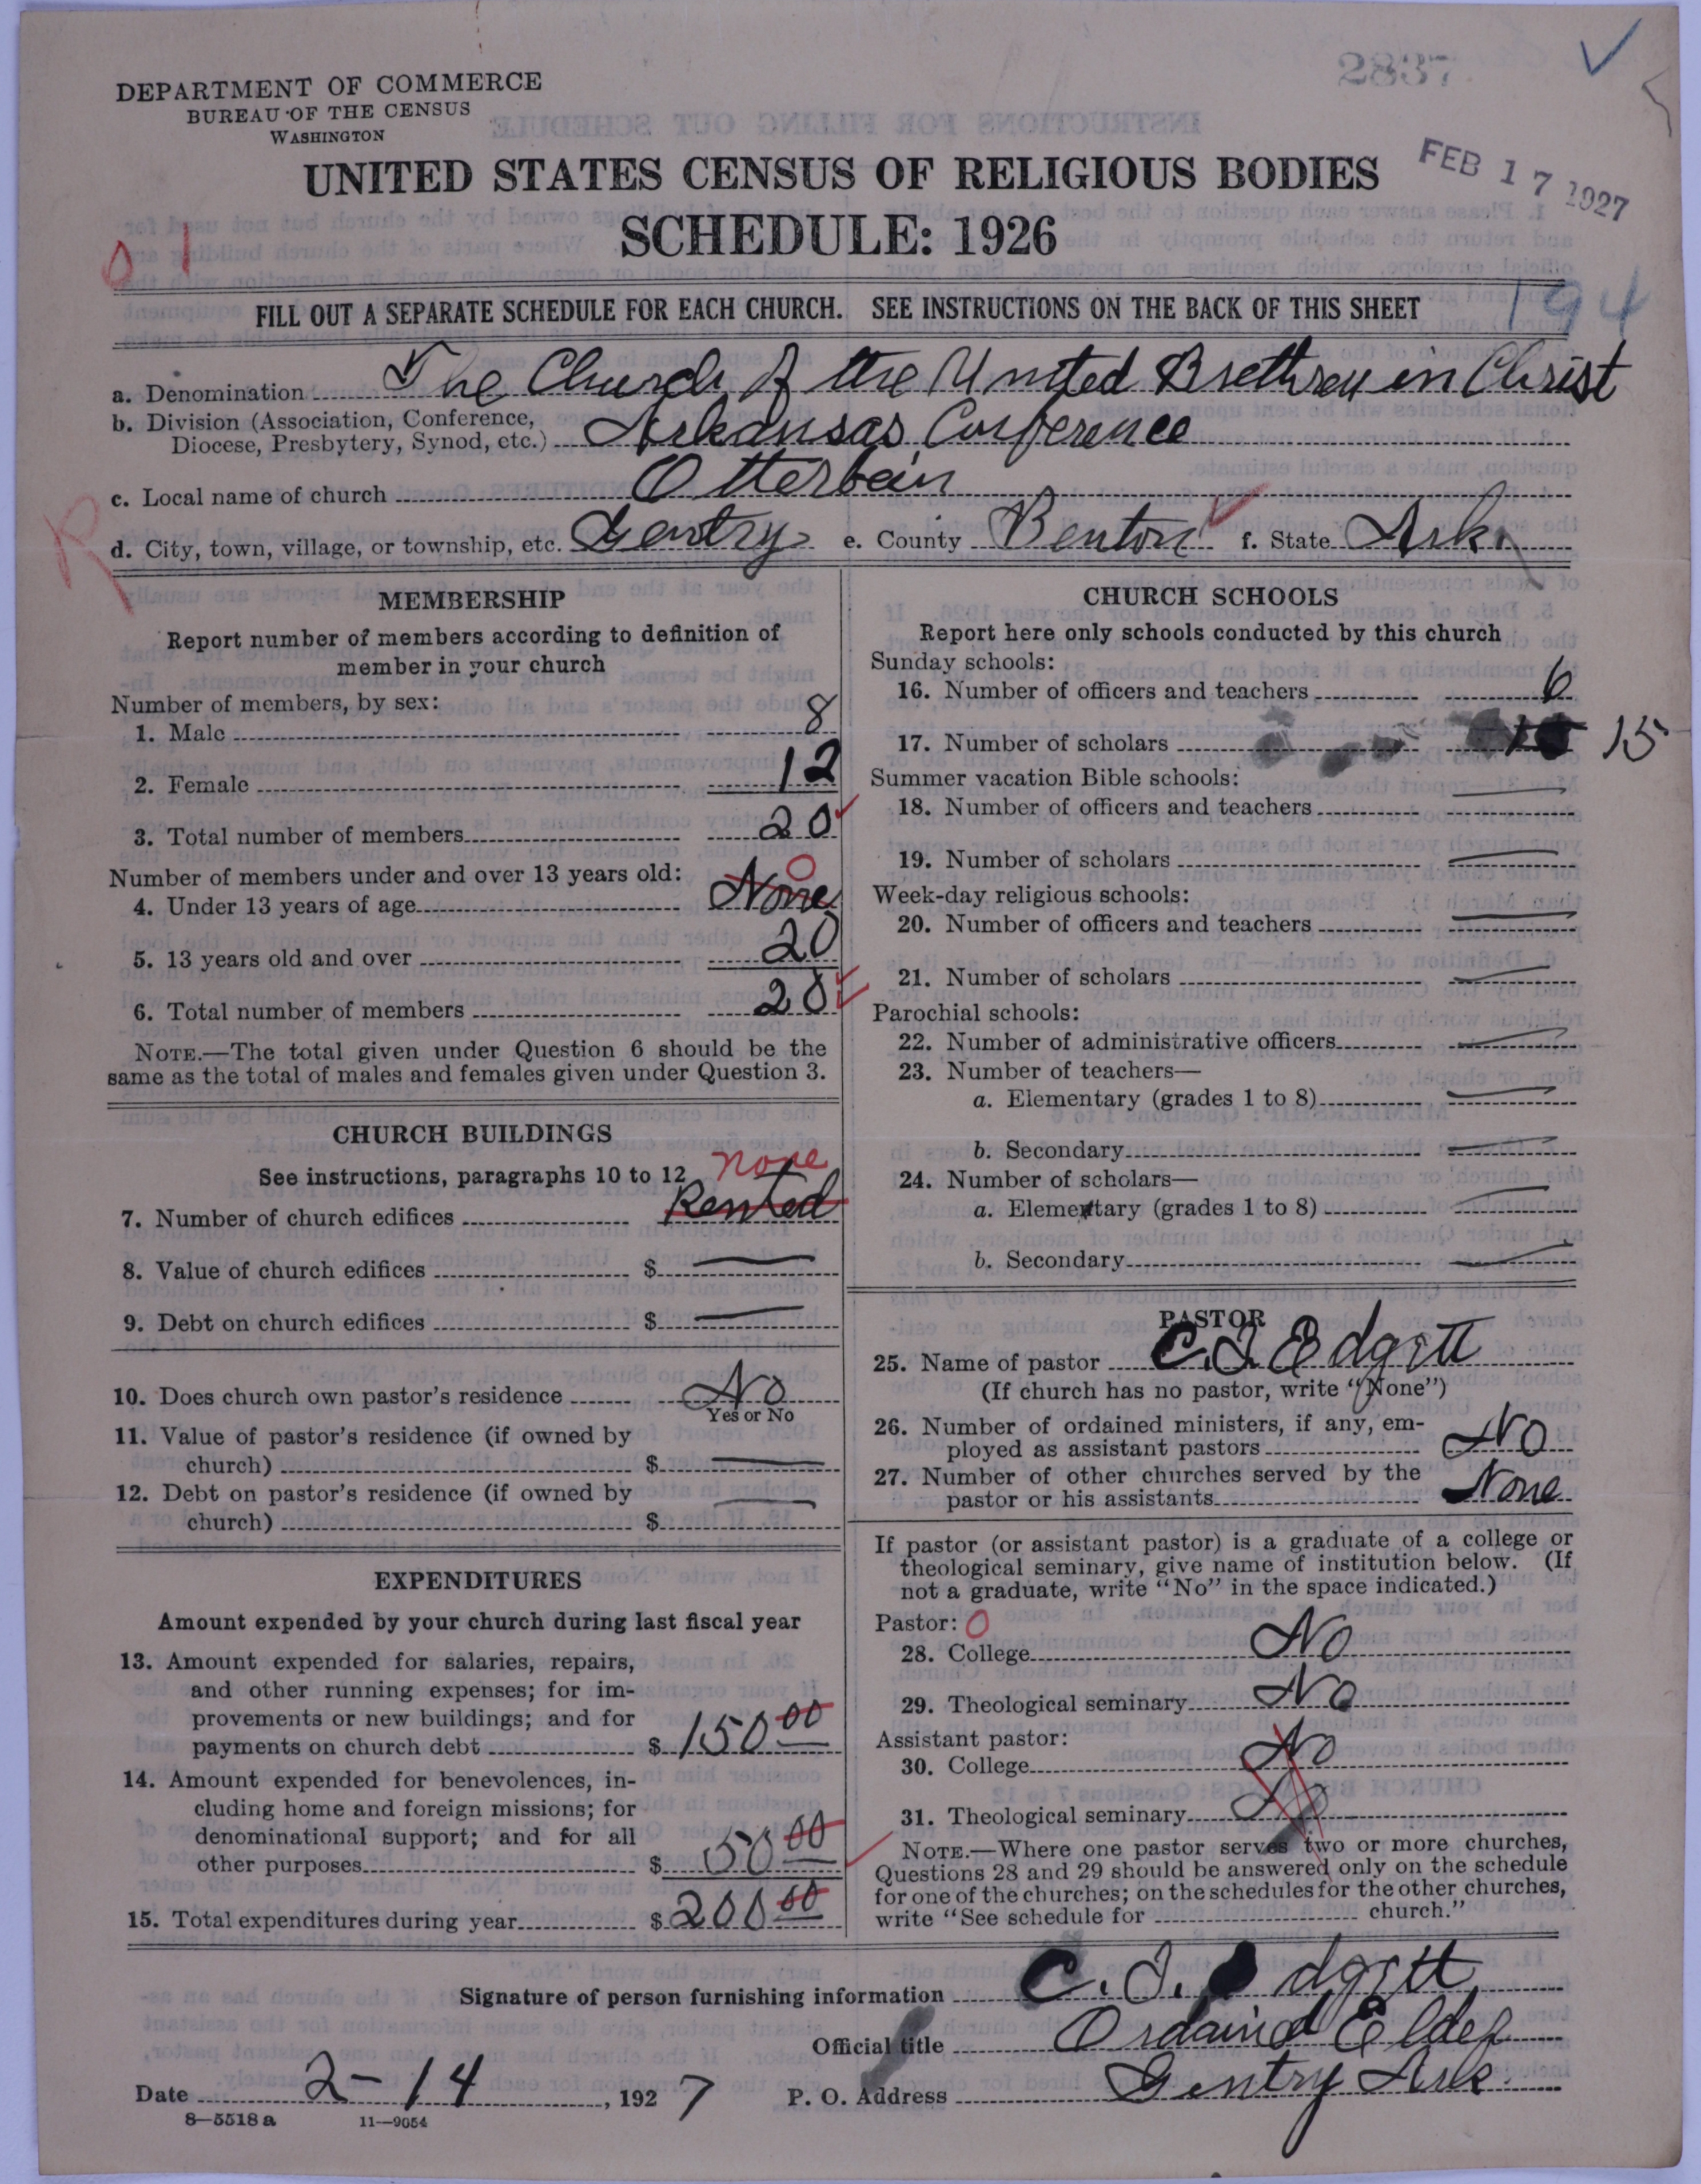 2837
DEPARTMENT OF COMMERCE
BUREAU OF THE CENSUS
WASHINGTON
UNITED STATES CENSUS OF RELIGIOUS BODIES
FEB 17 1927
SCHEDULE: 1926
01
FILL OUT A SEPARATE SCHEDULE FOR EACH CHURCH. SEE INSTRUCTIONS ON THE BACK OF THIS SHEET
194
a. Denomination The Church of the United Brethren in Christ
b. Division (Association, Conference,
Diocese, Presbytery, Synod, etc.) Arkansas Conference
c. Local name of church Otterbein
R
d. City, town, village, or township, etc. Gentry e. County Benton f. State Ark.
MEMBERSHIP
Report number of members according to definition of
member in your church
Number of members, by sex:
1. Male 8
2. Female 12
3. Total number of members 20
Number of members under and over 13 years old:
0
4. Under 13 years of age None
5. 13 years old and over 20
6. Total number of members 20
NOTE.—The total given under Question 6 should be the
same as the total of males and females given under Question 3.
CHURCH BUILDINGS
See instructions, paragraphs 10 to 12
none
7. Number of church edifices Rented
8. Value of church edifices $ —
9. Debt on church edifices $ —
10. Does church own pastor's residence No
Yes or No
11. Value of pastor's residence (if owned by
church) $ —
12. Debt on pastor's residence (if owned by
church) $ —
EXPENDITURES
Amount expended by your church during last fiscal year
13. Amount expended for salaries, repairs,
and other running expenses; for im-
provements or new buildings; and for
payments on church debt $ 150 00
14. Amount expended for benevolences, in-
cluding home and foreign missions; for
denominational support; and for all
other purposes $ 50 00
15. Total expenditures during year $ 200 00
CHURCH SCHOOLS
Report here only schools conducted by this church
Sunday schools:
16. Number of officers and teachers 6
17. Number of scholars 15
Summer vacation Bible schools:
18. Number of officers and teachers —
19. Number of scholars —
Week-day religious schools:
20. Number of officers and teachers —
21. Number of scholars —
Parochial schools:
22. Number of administrative officers —
23. Number of teachers—
a. Elementary (grades 1 to 8) —
b. Secondary —
24. Number of scholars—
a. Elementary (grades 1 to 8) —
b. Secondary —
PASTOR
25. Name of pastor C. I. Edgitt
(If church has no pastor, write "None")
26. Number of ordained ministers, if any, em-
ployed as assistant pastors No
27. Number of other churches served by the
pastor or his assistants None
If pastor (or assistant pastor) is a graduate of a college or
theological seminary, give name of institution below. (If
not a graduate, write "No" in the space indicated.)
Pastor: 0
28. College No
29. Theological seminary No
Assistant pastor:
30. College No
31. Theological seminary No
NOTE.—Where one pastor serves two or more churches,
Questions 28 and 29 should be answered only on the schedule
for one of the churches; on the schedules for the other churches,
write "See schedule for church."
Signature of person furnishing information C. I. Edgitt
Official title Ordaind Elder
Date 2-14, 1927 P. O. Address Gentry Ark.
8—5518 a 11—9054